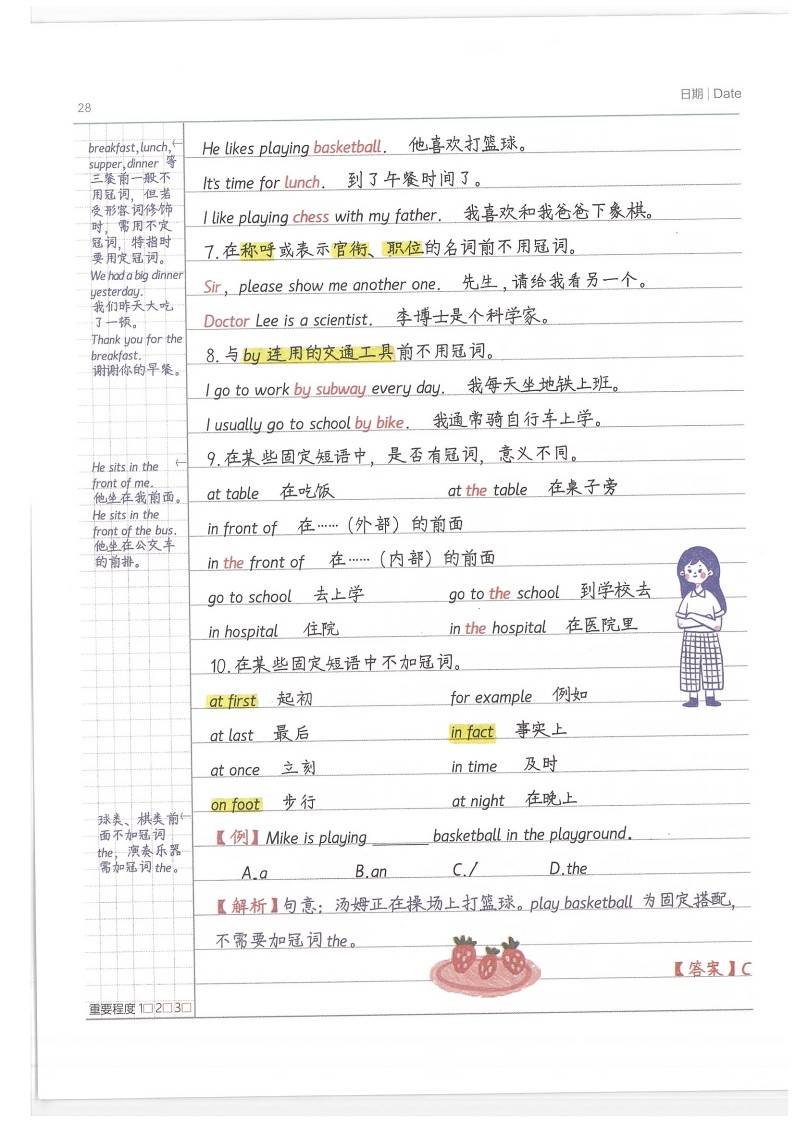 28
日期 | Date
breakfast, lunch,
supper, dinner 等
三餐前一般不
用冠词，但若
受形容词修饰
时，需用不定
冠词，特指时
要用定冠词。
We had a big dinner
yesterday.
我们昨天大吃
了一顿。
Thank you for the
breakfast.
谢谢你的早餐。
He sits in the
front of me.
他坐在我前面。
He sits in the
front of the bus.
他坐在公交车
的前排。
球类、棋类前
面不加冠词
the，演奏乐器
需加冠词 the。
重要程度 1□ 2□ 3□
He likes playing basketball. 他喜欢打篮球。
It's time for lunch. 到了午餐时间了。
I like playing chess with my father. 我喜欢和我爸爸下象棋。
7.在称呼或表示官衔、职位的名词前不用冠词。
Sir, please show me another one. 先生，请给我看另一个。
Doctor Lee is a scientist. 李博士是个科学家。
8.与 by 连用的交通工具前不用冠词。
I go to work by subway every day. 我每天坐地铁上班。
I usually go to school by bike. 我通常骑自行车上学。
9.在某些固定短语中，是否有冠词，意义不同。
at table 在吃饭 at the table 在桌子旁
in front of 在……（外部）的前面
in the front of 在……（内部）的前面
go to school 去上学 go to the school 到学校去
in hospital 住院 in the hospital 在医院里
10.在某些固定短语中不加冠词。
at first 起初 for example 例如
at last 最后 in fact 事实上
at once 立刻 in time 及时
on foot 步行 at night 在晚上
【例】Mike is playing ______ basketball in the playground.
A.a B.an C./ D.the
【解析】句意：汤姆正在操场上打篮球。play basketball 为固定搭配，
不需要加冠词 the。
【答案】C